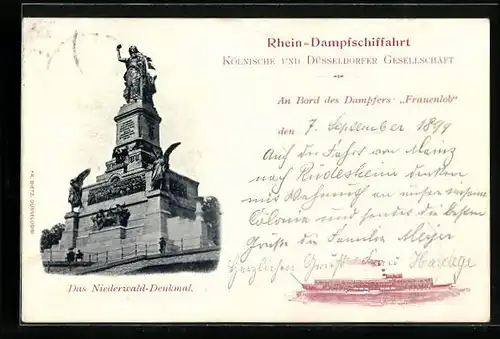 Rhein-Dampfschiffahrt
Kölnische und Düsseldorfer Gesellschaft
An Bord des Dampfers „Frauenlob"
den 7. September 1899
Auf der Fahrt von Mainz
nach Rüdesheim denken
wir Wehmuth an unsere
Colonie und senden die besten
Grüße die Familie Meyer
Herzlichen Gruß
Das Niederwald-Denkmal.